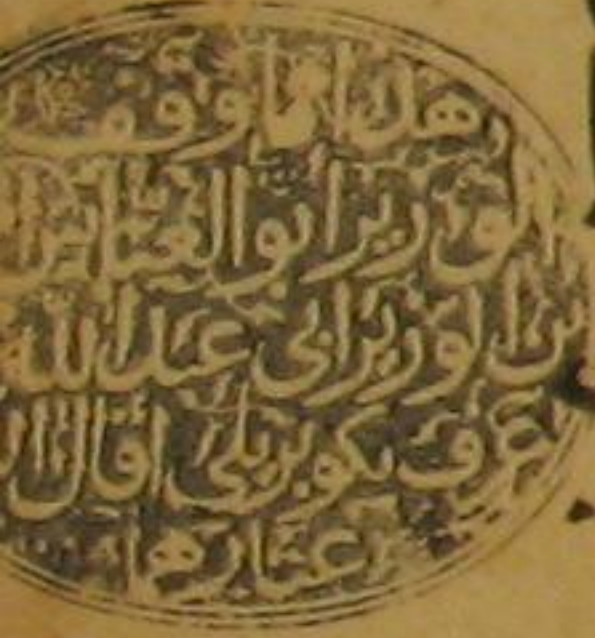 هذا ما وقف
الوزير أبو العباس أحمد
بن الوزير أبي عبد الله
عرف بكوبريلي أقال الله
عثارهما